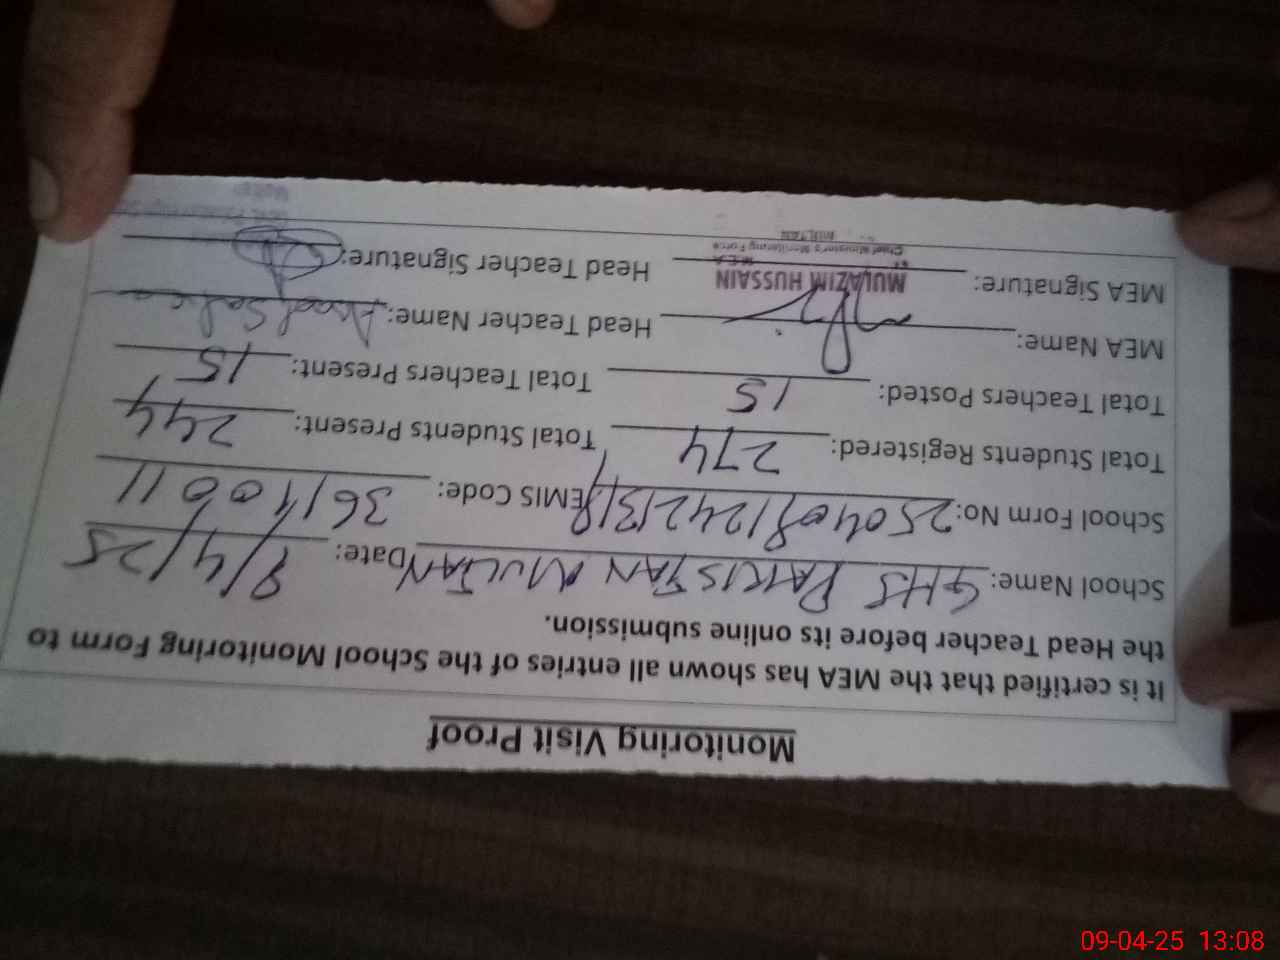 Monitoring Visit Proof
It is certified that the MEA has shown all entries of the School Monitoring Form to
the Head Teacher before its online submission.
School Name: GHS PAKISTAN MULTAN Date: 9/4/25
School Form No: EMIS Code: 36110011
Total Students Registered: 274 Total Students Present: 244
Total Teachers Posted: 15 Total Teachers Present: 15
MEA Name: Head Teacher Name:
MEA Signature: Head Teacher Signature:
MULAZIM HUSSAIN
M.E.A
Chief Minister's Monitoring Force
MULTAN
09-04-25 13:08